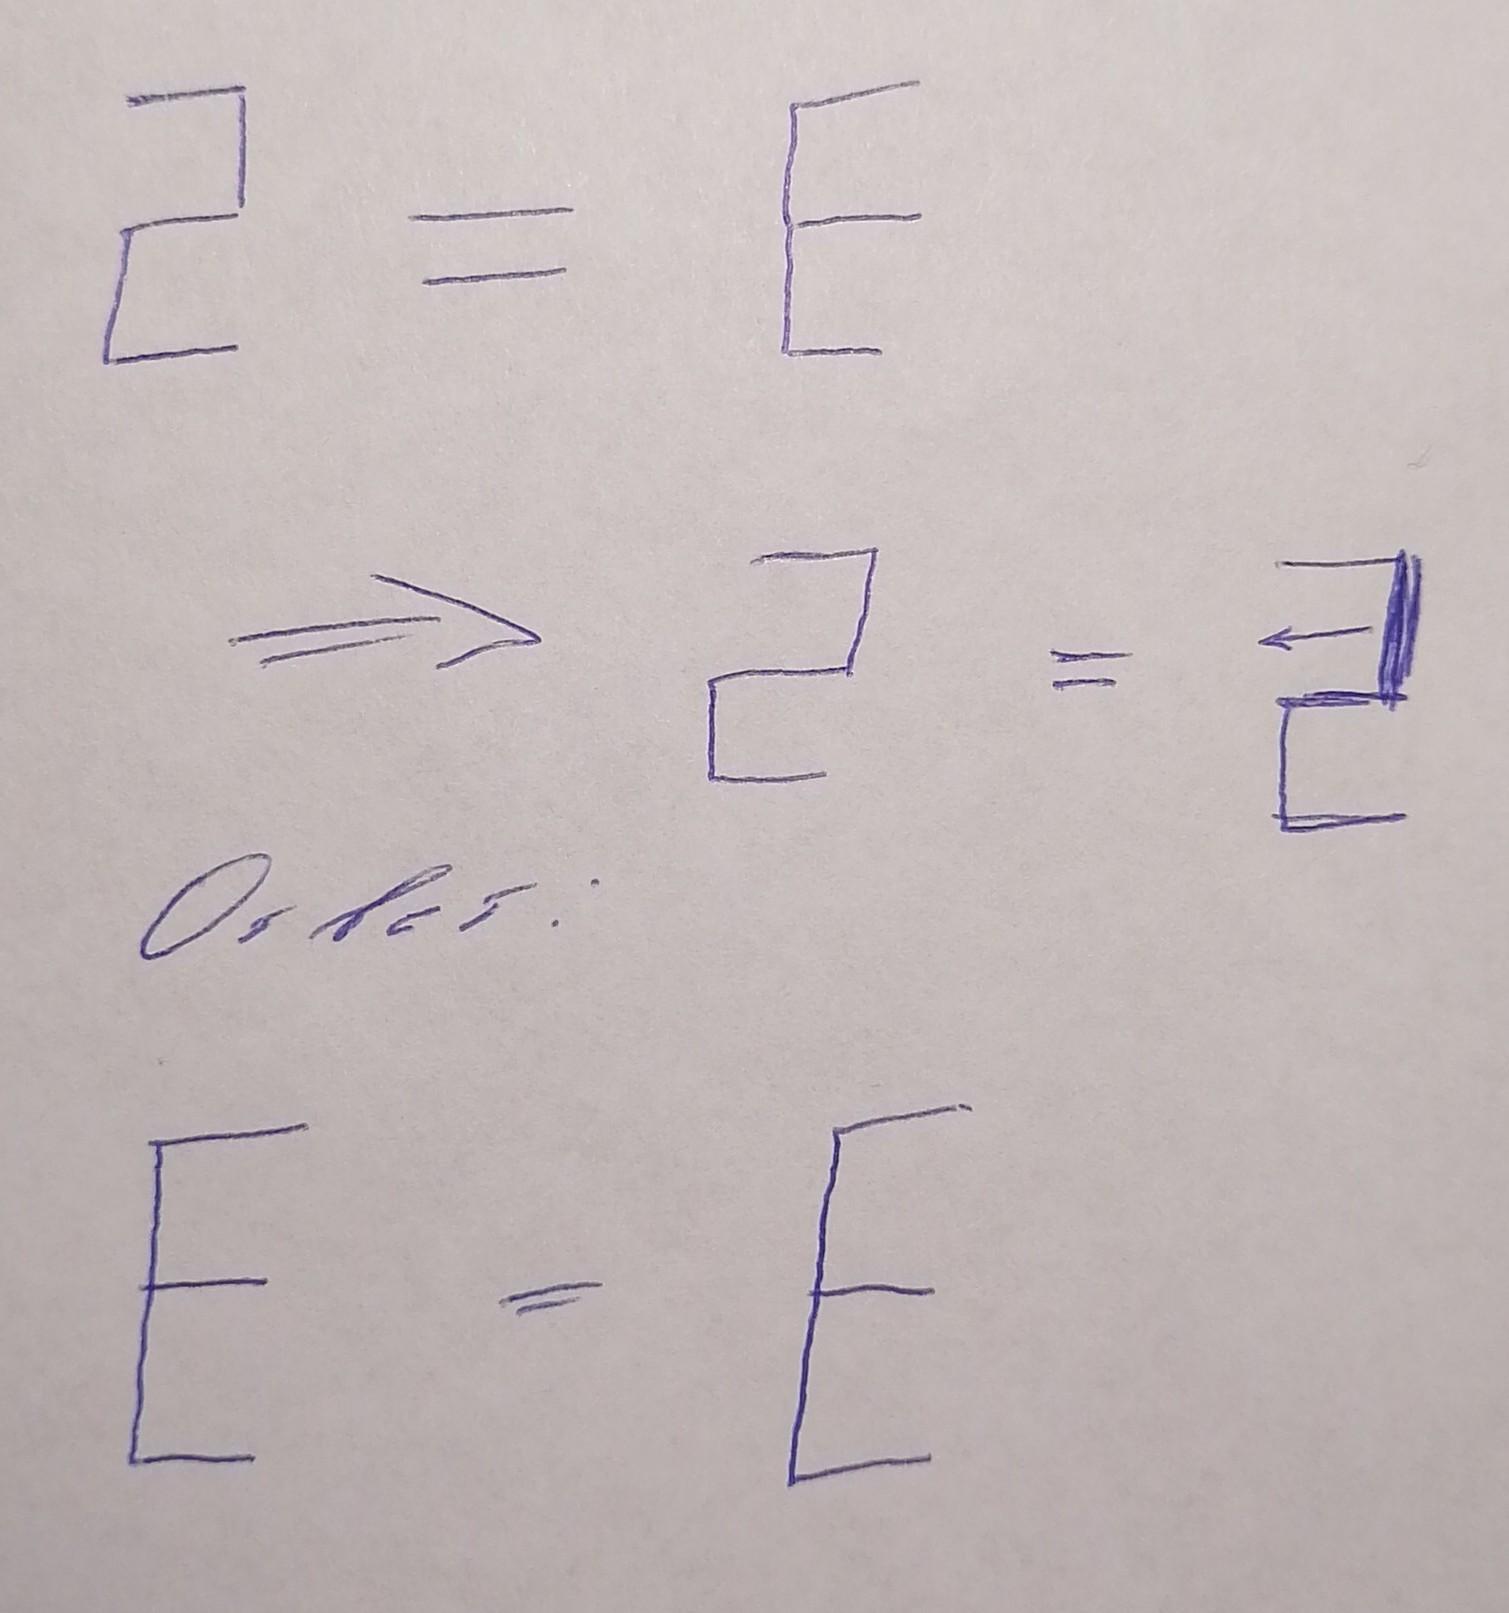 2 = E
⇒ 2 = 2
Ответ:
E = E